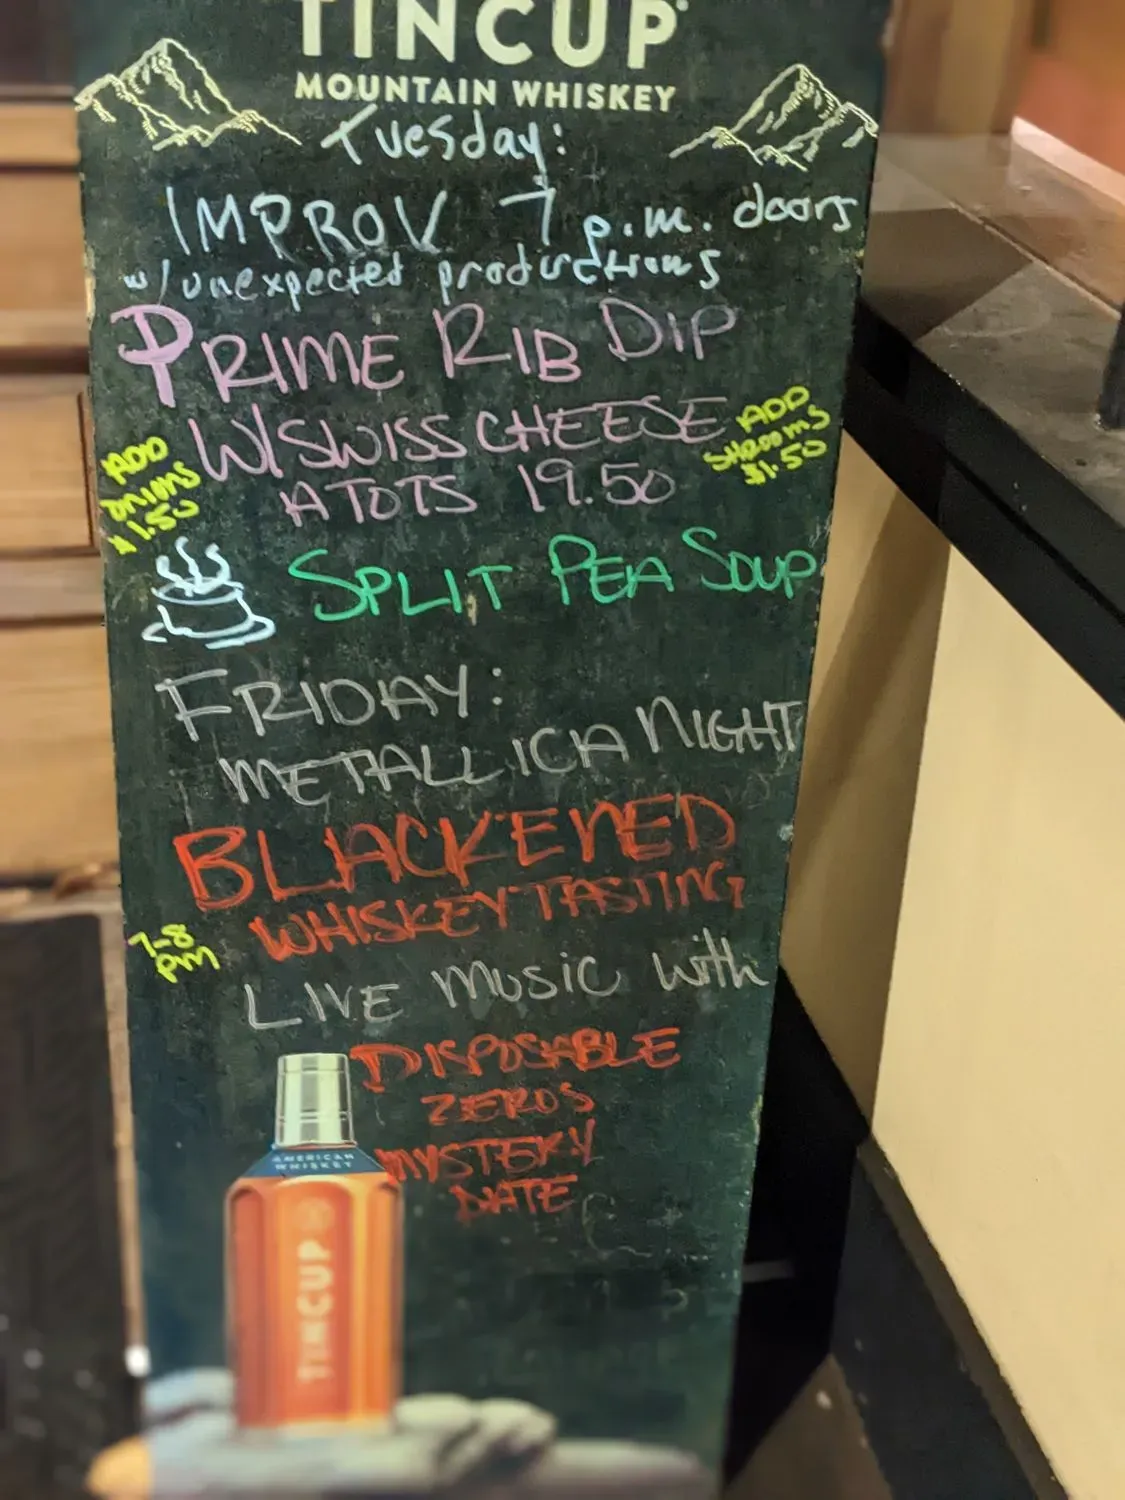 TINCUP
MOUNTAIN WHISKEY
Tuesday:
IMPROV 7 p.m. doors
w/unexpected productions
PRIME RIB DIP
W/SWISS CHEESE
ADD
SHROOMS
$1.50
ADD
ONIONS
$1.50
A TOTS 19.50
SPLIT PEA SOUP
FRIDAY:
METALLICA NIGHT
BLACKENED
WHISKEY TASTING
7-8
PM
LIVE MUSIC with
DISPOSABLE
ZEROS
MYSTERY
DATE
AMERICAN
WHISKEY
TINCUP